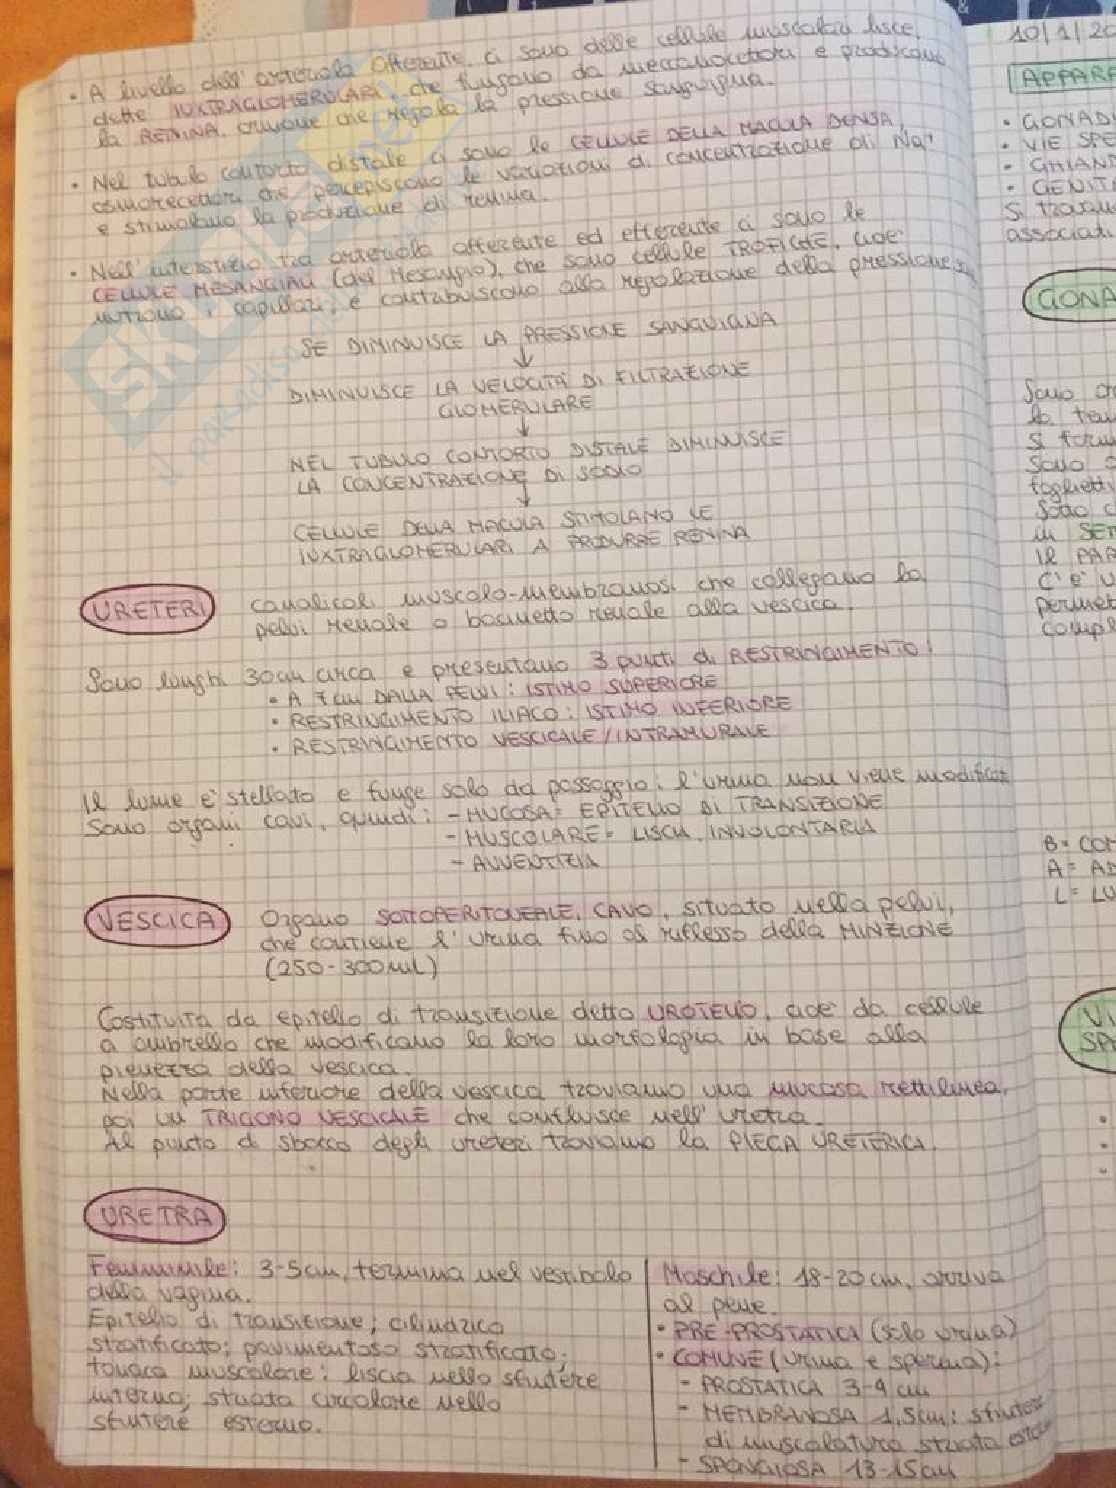 • A livello dell'arteriola afferente, ci sono delle cellule muscolari lisce,
dette IUXTRAGLOMERULARI, che fungono da meccanocettori e producono
la RENINA, ormone che regola la pressione sanguigna.
• Nel tubulo contorto distale ci sono le CELLULE DELLA MACULA DENSA,
osmorecettori che percepiscono le variazioni di concentrazione di Na+
e stimolano la produzione di renina.
• Nell'interstizio tra arteriola afferente ed efferente ci sono le
CELLULE MESANGIALI (del Mesangio), che sono cellule TROFICHE, cioè
nutrono i capillari, e contribuiscono alla regolazione della pressione
SE DIMINUISCE LA PRESSIONE SANGUIGNA
↓
DIMINUISCE LA VELOCITÀ DI FILTRAZIONE
GLOMERULARE
↓
NEL TUBULO CONTORTO DISTALE DIMINUISCE
LA CONCENTRAZIONE DI SODIO
↓
CELLULE DELLA MACULA STIMOLANO LE
IUXTRAGLOMERULARI A PRODURRE RENINA
URETERI canalicoli muscolo-membranosi che collegano la
pelvi renale o bacinetto renale alla vescica.
Sono lunghi 30cm circa e presentano 3 punti di RESTRINGIMENTO:
• A 7cm DALLA PELVI: ISTIMO SUPERIORE
• RESTRINGIMENTO ILIACO: ISTIMO INFERIORE
• RESTRINGIMENTO VESCICALE/INTRAMURALE
Il lume è stellato e funge solo da passaggio: l'urina non viene modificat
Sono organi cavi, quindi: - MUCOSA= EPITELIO DI TRANSIZIONE
- MUSCOLARE= LISCIA, INVOLONTARIA
- AVVENTIZIA
VESCICA Organo SOTTOPERITONEALE, CAVO, situato nella pelvi,
che contiene l'urina fino al riflesso della MINZIONE
(250-300mL)
Costituita da epitelio di transizione detto UROTELIO, cioè da cellule
a ombrello che modificano la loro morfologia in base alla
pienezza della vescica.
Nella parte inferiore della vescica troviamo una mucosa rettilinea,
poi un TRIGONO VESCICALE che confluisce nell'uretra.
Al punto di sbocco degli ureteri troviamo la PIEGA URETERICA.
URETRA
Femminile: 3-5cm, termina nel vestibolo
della vagina.
Epitelio di transizione; cilindrico
stratificato; pavimentoso stratificato;
tonaca muscolare: liscia nello sfintere
interno; striata circolare nello
sfintere esterno.
Maschile: 18-20cm, arriva
al pene.
• PRE-PROSTATICA (solo urina)
• COMUNE (urina e sperma):
- PROSTATICA 3-4 cm
- MEMBRANOSA 1,5cm: sfinter
di muscolatura striata
- SPONGIOSA 13-15cm
10/1/20
APPARE
• GONAD
• VIE SPE
• GHIAND
• GENIT
Si
associati
GONA
Sono
la
si form
Sono
foglietti
Sono
in SE
Il PAR
C'è
permet
compl
B= COM
A= AD
L= LU
VI
SP